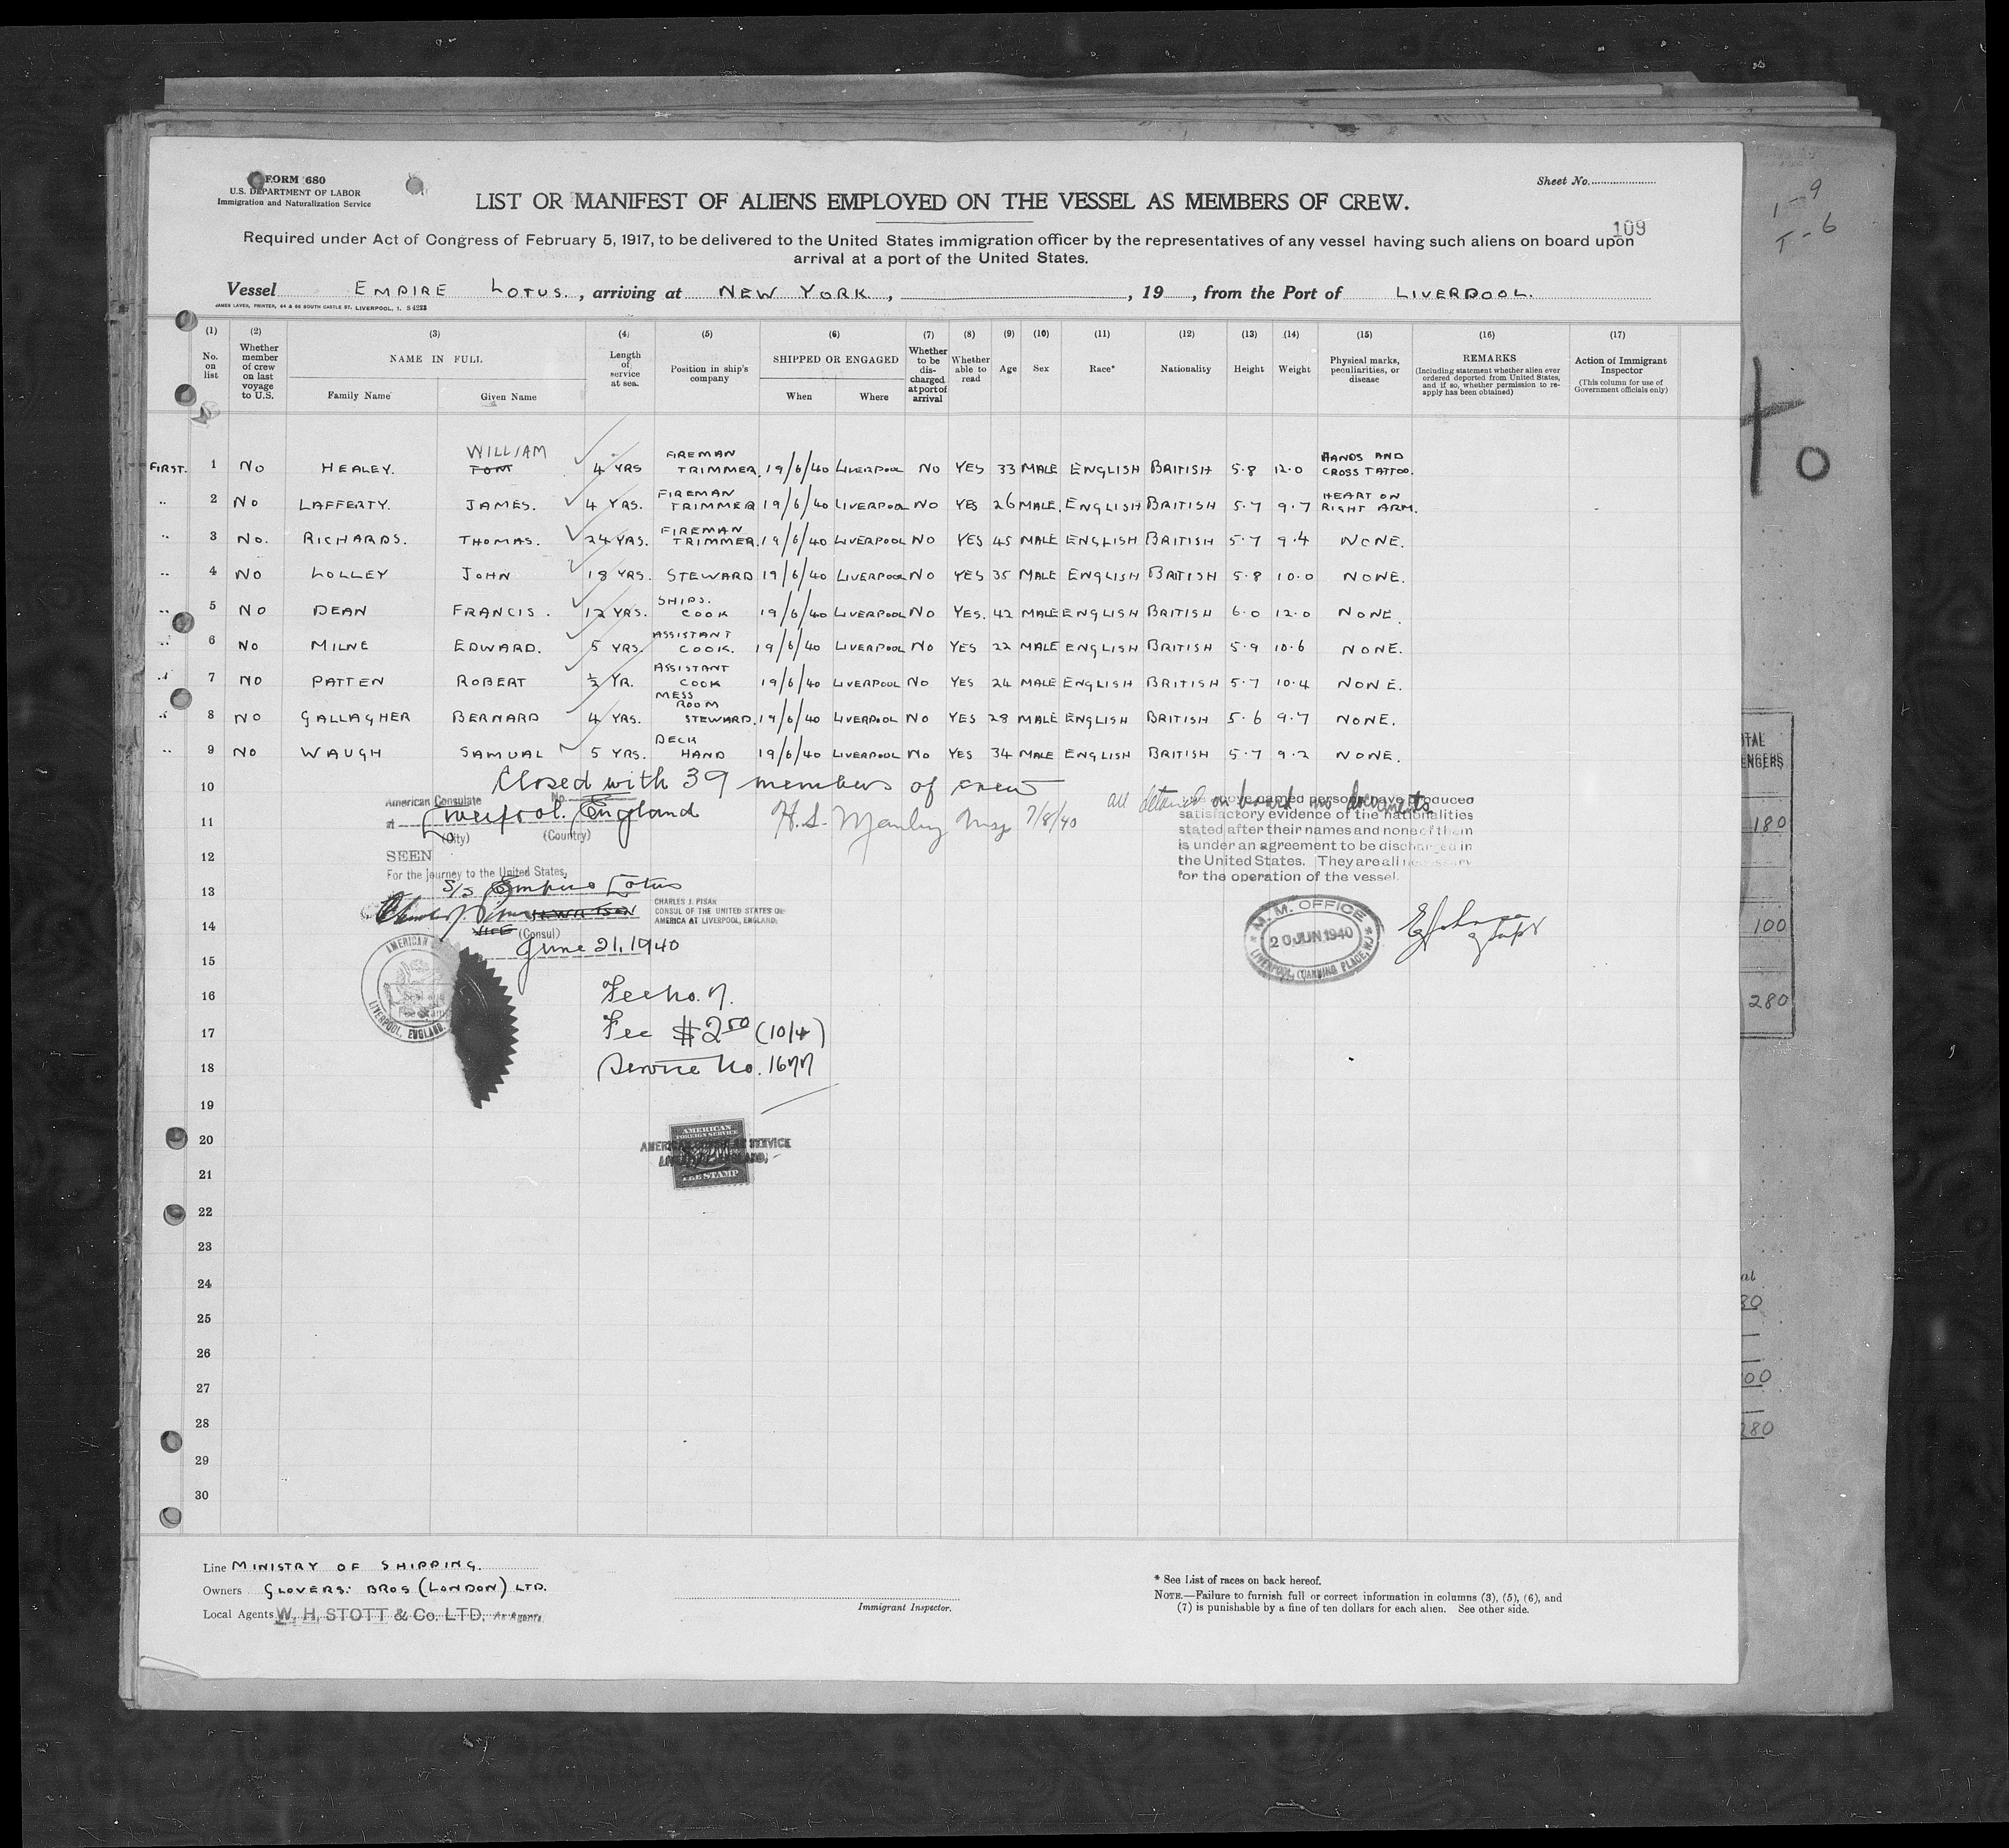 FORM 680
U.S. DEPARTMENT OF LABOR
Immigration and Naturalization Service
Sheet No.
LIST OR MANIFEST OF ALIENS EMPLOYED ON THE VESSEL AS MEMBERS OF CREW.
109
Required under Act of Congress of February 5, 1917, to be delivered to the United States immigration officer by the representatives of any vessel having such aliens on board upon
arrival at a port of the United States.
Vessel EMPIRE LOTUS., arriving at NEW YORK, , 19 , from the Port of LIVERPOOL.
JAMES LAVER, PRINTER, 64 & 66 SOUTH CASTLE ST. LIVERPOOL, 1. S 4223
(1) (2) (3) (4) (5) (6) (7) (8) (9) (10) (11) (12) (13) (14) (15) (16) (17)
No. on list
Whether member of crew on last voyage to U.S.
NAME IN FULL
Family Name
Given Name
Length of service at sea.
Position in ship's company
SHIPPED OR ENGAGED
When
Where
Whether to be discharged at port of arrival
Whether able to read
Age
Sex
Race*
Nationality
Height
Weight
Physical marks, peculiarities, or disease
REMARKS
(Including statement whether alien ever ordered deported from United States, and if so, whether permission to re-apply has been obtained)
Action of Immigrant Inspector
(This column for use of Government officials only)
FIRST. 1 NO HEALEY. TOM WILLIAM 4 YRS FIREMAN TRIMMER. 19/6/40 LIVERPOOL NO YES 33 MALE ENGLISH BRITISH 5.8 12.0 HANDS AND CROSS TATTOO.
.. 2 NO LAFFERTY. JAMES. 4 YRS. FIREMAN TRIMMER 19/6/40 LIVERPOOL NO YES 26 MALE. ENGLISH BRITISH 5.7 9.7 HEART ON RIGHT ARM.
.. 3 NO. RICHARDS. THOMAS. 24 YRS. FIREMAN TRIMMER. 19/6/40 LIVERPOOL NO YES 45 MALE ENGLISH BRITISH 5.7 9.4 NONE.
.. 4 NO LOLLEY JOHN 18 YRS. STEWARD 19/6/40 LIVERPOOL NO YES 35 MALE ENGLISH BRITISH 5.8 10.0 NONE.
.. 5 NO DEAN FRANCIS. 12 YRS. SHIPS. COOK 19/6/40 LIVERPOOL NO YES. 42 MALE ENGLISH BRITISH 6.0 12.0 NONE.
.. 6 NO MILNE EDWARD. 5 YRS. ASSISTANT COOK. 19/6/40 LIVERPOOL NO YES 22 MALE ENGLISH BRITISH 5.9 10.6 NONE.
.. 7 NO PATTEN ROBERT ½ YR. ASSISTANT COOK 19/6/40 LIVERPOOL NO YES 24 MALE ENGLISH BRITISH 5.7 10.4 NONE.
.. 8 NO GALLAGHER BERNARD 4 YRS. MESS ROOM STEWARD. 19/6/40 LIVERPOOL NO YES 28 MALE ENGLISH BRITISH 5.6 9.7 NONE.
.. 9 NO WAUGH SAMUAL 5 YRS. DECK HAND 19/6/40 LIVERPOOL NO YES 34 MALE ENGLISH BRITISH 5.7 9.2 NONE.
10 Closed with 39 members of crew
American Consulate No.
all detained on board no documents
at Liverpool. England
(City) (Country)
11 H.S. Manley Insp 7/8/40
The above named persons have produced
satisfactory evidence of the nationalities
stated after their names and none of them
is under an agreement to be discharged in
the United States. They are all necessary
for the operation of the vessel.
12
SEEN
For the journey to the United States,
13 S/S Empire Lotus
CHARLES J. PISAR
CONSUL OF THE UNITED STATES OF
AMERICA AT LIVERPOOL, ENGLAND.
14
VICE (Consul)
June 21, 1940
M. M. OFFICE
20 JUN 1940
LIVERPOOL, (CANNING PLACE, NJ)
15
AMERICAN
LIVERPOOL, ENGLAND.
16 Fee No. 7.
17 Fee $2 50 (10/4)
18 Service No. 1677
19
20
AMERICAN
FOREIGN SERVICE
FEE STAMP
AMERICAN SERVICE
21
22
23
24
25
26
27
28
29
30
Line MINISTRY OF SHIPPING.
Owners GLOVERS: BROS (LONDON) LTD.
Local Agents W. H. STOTT & Co. LTD. As Agents.
Immigrant Inspector.
* See List of races on back hereof.
NOTE.—Failure to furnish full or correct information in columns (3), (5), (6), and
(7) is punishable by a fine of ten dollars for each alien. See other side.
1-9
T-6
to
180
100
280